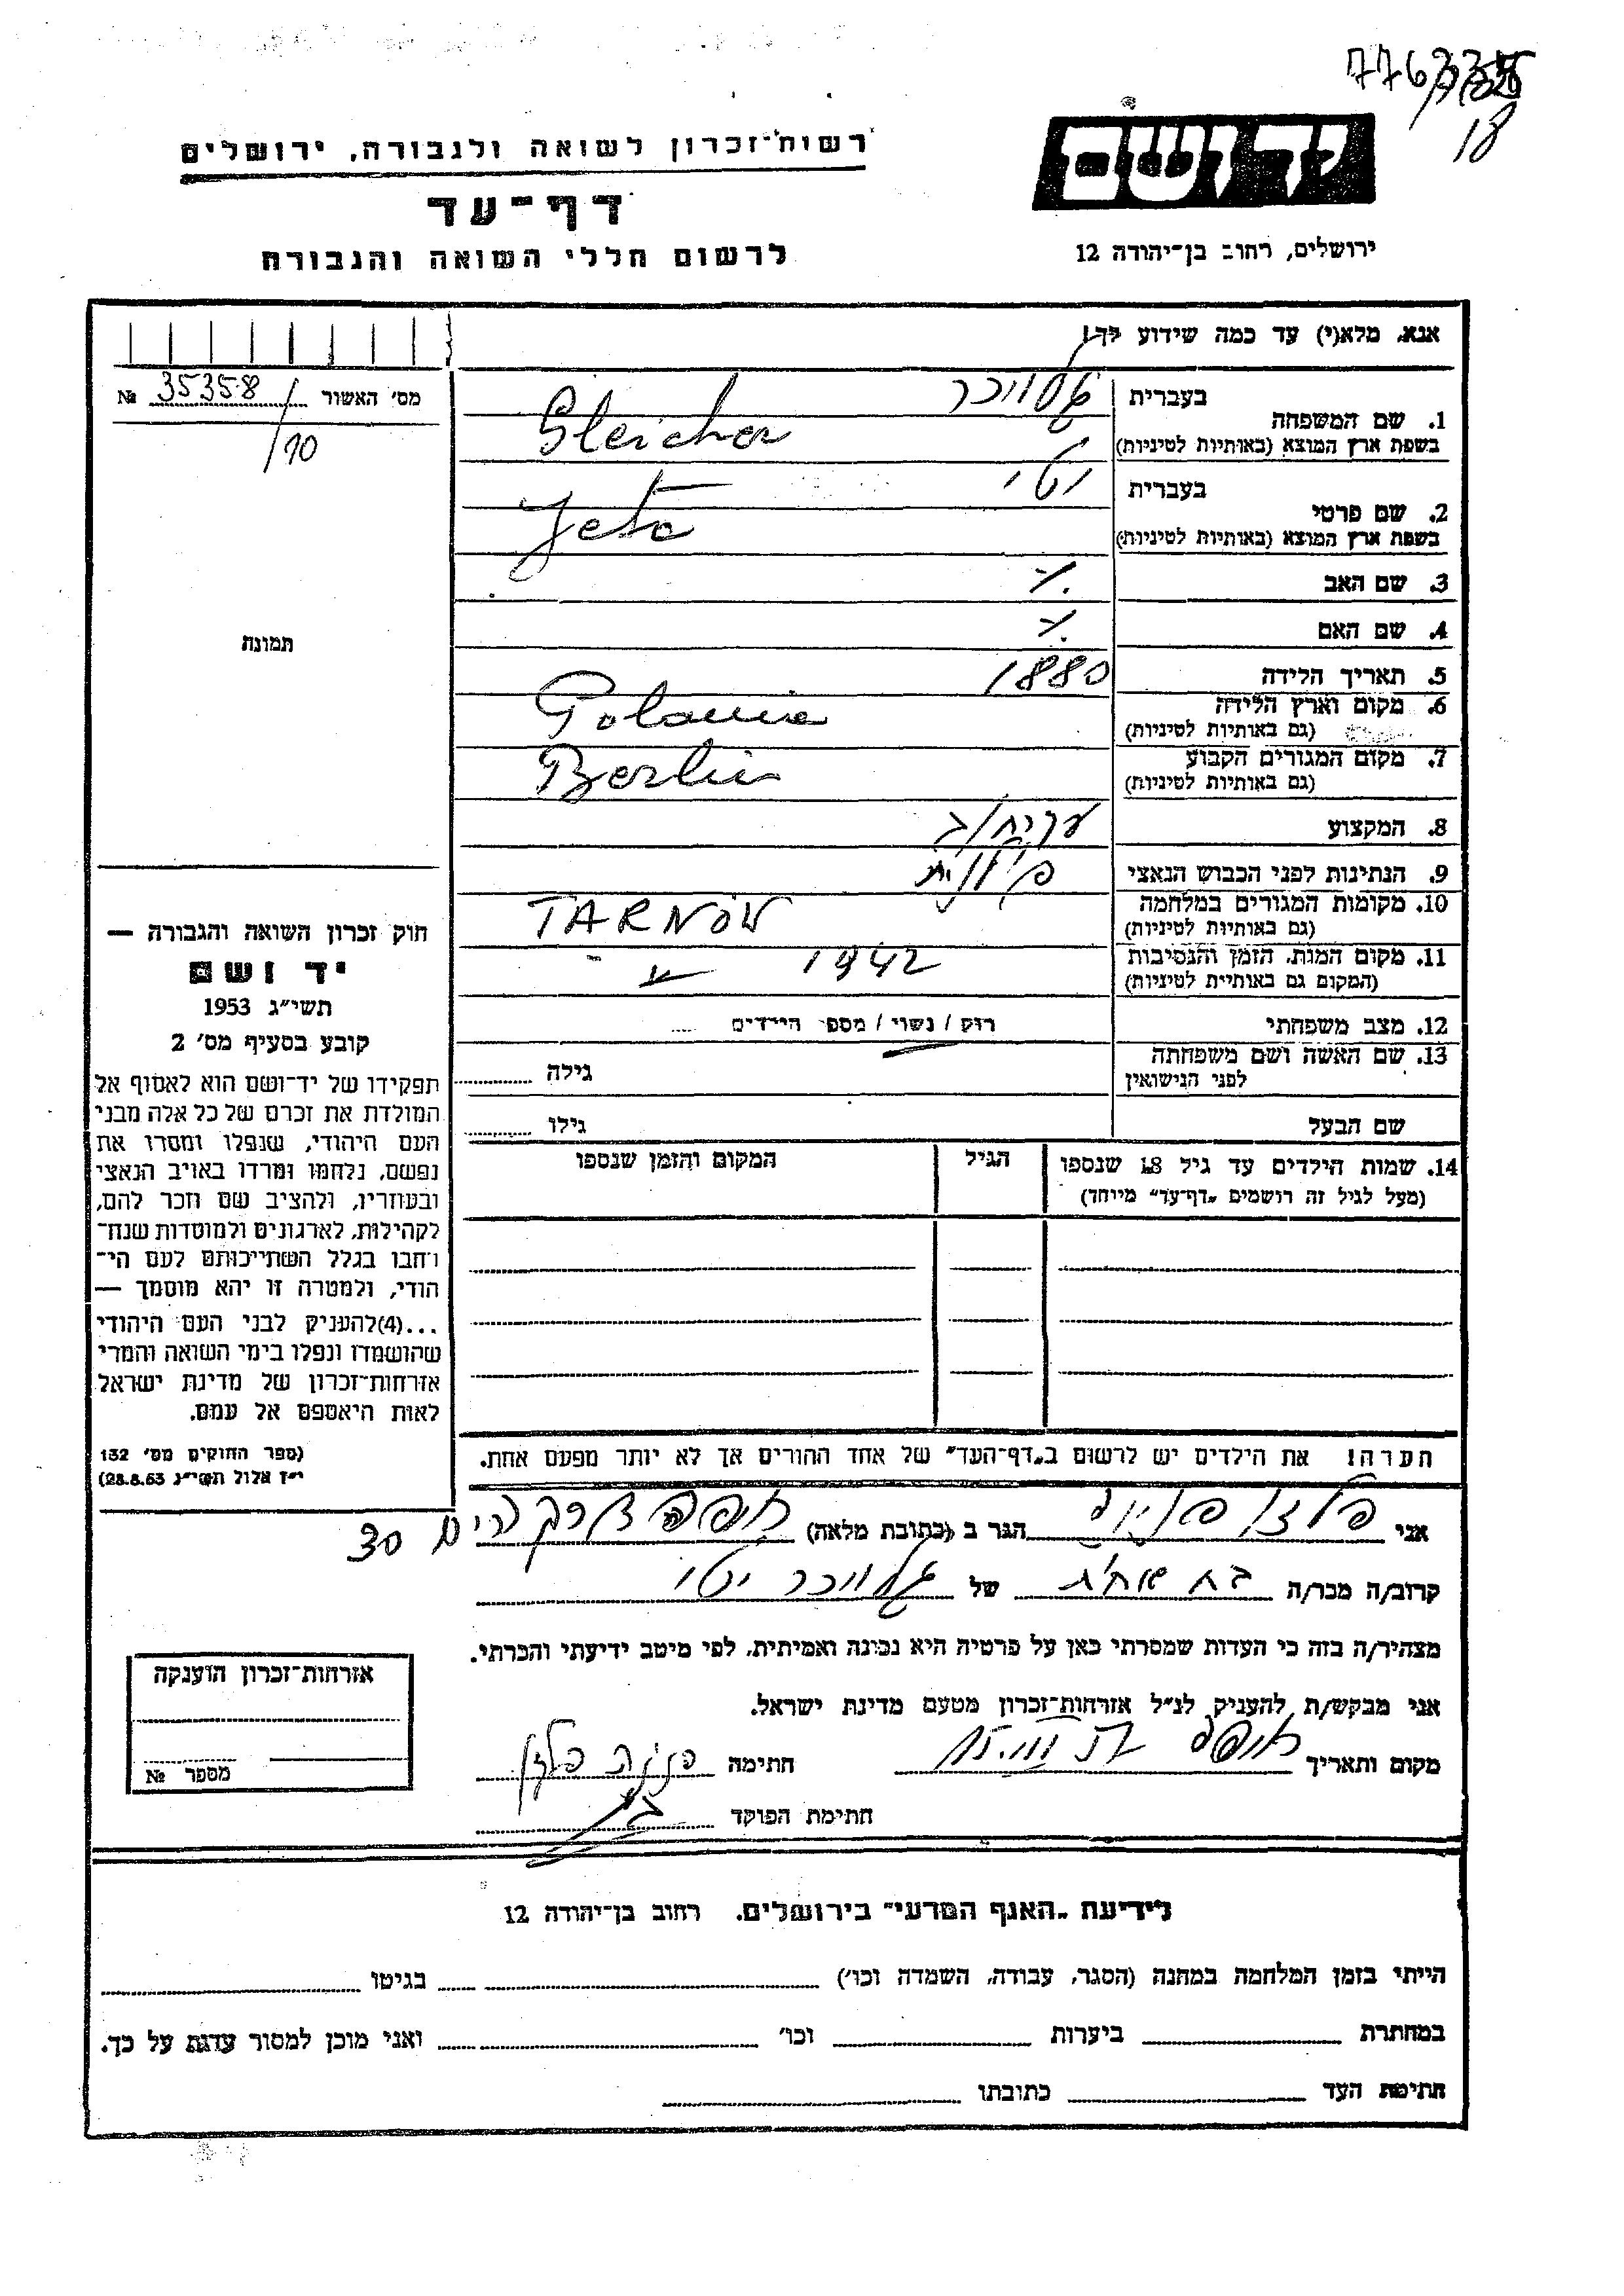 776335
18
יד ושם
ירושלים, רחוב בן־יהודה 12
רשות־זכרון לשואה ולגבורה, ירושלים
דף־עד
לרשום חללי השואה והגבורה
אנא, מלא(י) עד כמה שידוע לך!
מס׳ האשור 35358 №
/10
תמונה
1. שם המשפחה
בעברית גלייכר
בשפת ארץ המוצא (באותיות לטיניות) Gleicher
2. שם פרטי
בעברית יטי
בשפת ארץ המוצא (באותיות לטיניות) Jeta
3. שם האב
4. שם האם
5. תאריך הלידה 1880
6. מקום וארץ הלידה
(גם באותיות לטיניות) Polania
7. מקום המגורים הקבוע
(גם באותיות לטיניות) Berlin
8. המקצוע
9. הנתינות לפני הכבוש הנאצי
10. מקומות המגורים במלחמה
(גם באותיות לטיניות) TARNÓW
11. מקום המות, הזמן והנסיבות
(המקום גם באותיות לטיניות) 1942
12. מצב משפחתי רוק / נשוי / מספר הילדים ....
13. שם האשה ושם משפחתה
לפני הנישואין גילה
שם הבעל גילו
14. שמות הילדים עד גיל 18 שנספו
(מעל לגיל זה רושמים „דף־עד״ מיוחד)
הגיל
המקום והזמן שנספו
חוק זכרון השואה והגבורה —
יד ושם
תשי״ג 1953
קובע בסעיף מס׳ 2
תפקידו של יד־ושם הוא לאסוף אל
המולדת את זכרם של כל אלה מבני
העם היהודי, שנפלו ומסרו את
נפשם, נלחמו ומרדו באויב הנאצי
ובעוזריו, ולהציב שם וזכר להם,
לקהילות, לארגונים ולמוסדות שנח־
רחבו בגלל השתייכותם לעם הי־
הודי, ולמטרה זו יהא מוסמך —
...(4)להעניק לבני העם היהודי
שהושמדו ונפלו בימי השואה והמרי
אזרחות־זכרון של מדינת ישראל
לאות היאספם אל עמם.
(ספר החוקים מס׳ 132
י״ז אלול תשי״ג 28.8.53)
הערה! את הילדים יש לרשום ב„דף־העד״ של אחד ההורים אך לא יותר מפעם אחת.
אני הגר ב (כתובת מלאה) חיפה 30
קרוב/ה מכר/ה של גלייכר יטי
מצהיר/ה בזה כי העדות שמסרתי כאן על פרטיה היא נכונה ואמיתית, לפי מיטב ידיעתי והכרתי.
אני מבקש/ת להעניק לנ״ל אזרחות־זכרון מטעם מדינת ישראל.
מקום ותאריך חיפה חתימה
חתימת הפוקד
אזרחות־זכרון הוענקה
מספר №
לידיעת „האגף המדעי״ בירושלים, רחוב בן־יהודה 12
הייתי בזמן המלחמה במחנה (הסגר, עבודה, השמדה וכו׳) בגיטו
במחתרת ביערות וכו׳ ואני מוכן למסור עדות על כך.
חתימת העד כתובתו